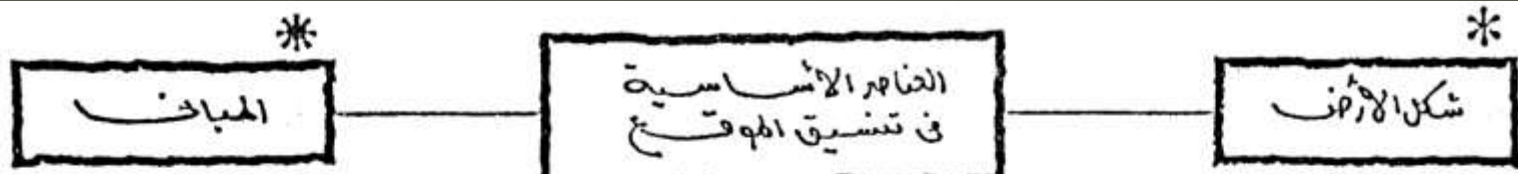 شكل الأرض
العناصر الأساسية
فى تنسيق الموقع
المبانى